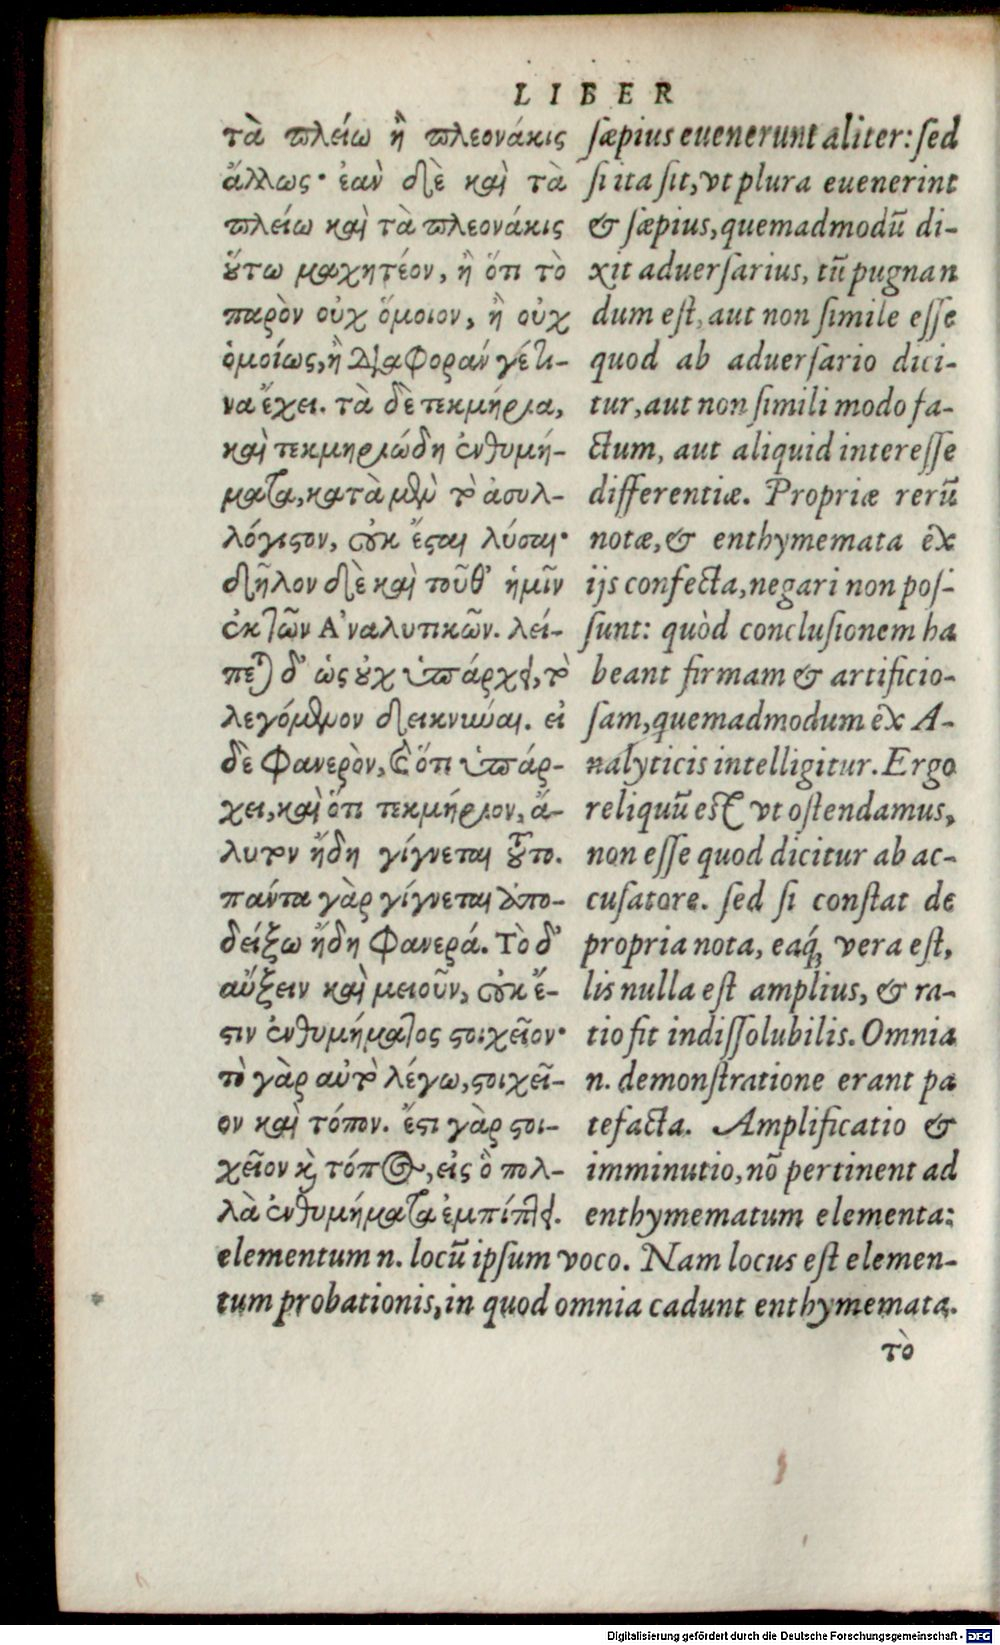 LIBER
τὰ πλείω ἢ πλεονάκις
ἄλλως· ἐὰν δὲ καὶ τὰ
πλείω καὶ τὰ πλεονάκις
οὕτω μαχητέον, ἢ ὅτι τὸ
παρὸν οὐχ ὅμοιον, ἢ οὐχ
ὁμοίως, ἢ διαφοράν γέ τι-
να ἔχει. τὰ δὲ τεκμήρια,
καὶ τεκμηριώδη ἐνθυμή-
ματα, κατὰ μὲν τὸ ἀσυλ-
λόγιστον, οὐκ ἔσται λύσαι·
δῆλον δὲ καὶ τοῦθ' ἡμῖν
ἐκ τῶν Ἀναλυτικῶν. λεί-
πεται δ' ὡς οὐχ ὑπάρχει, τὸ
λεγόμενον δεικνύναι. εἰ
δὲ φανερὸν, καὶ ὅτι ὑπάρ-
χει, καὶ ὅτι τεκμήριον, ἄ-
λυτον ἤδη γίγνεται τοῦτο.
πάντα γὰρ γίγνεται ἀπο-
δείξω ἤδη φανερά. Τὸ δ'
αὔξειν καὶ μειοῦν, οὐκ ἔ-
στιν ἐνθυμήματος στοιχεῖον·
τὸ γὰρ αὐτὸ λέγω, στοιχεῖ-
ον καὶ τόπον. ἔστι γὰρ στοι-
χεῖον καὶ τόπος, εἰς ὃ πολ-
λὰ ἐνθυμήματα ἐμπίπτει.
sæpius euenerunt aliter: sed
si ita sit, vt plura euenerint
& sæpius, quemadmodū di-
xit aduersarius, tū pugnan
dum est, aut non simile esse
quod ab aduersario dici-
tur, aut non simili modo fa-
ctum, aut aliquid interesse
differentiæ. Propriæ rerū
notæ, & enthymemata ex
ijs confecta, negari non pos-
sunt: quòd conclusionem ha
beant firmam & artificio-
sam, quemadmodum ex A-
nalyticis intelligitur. Ergo
reliquū est vt ostendamus,
non esse quod dicitur ab ac-
cusatore. sed si constat de
propria nota, eaq́; vera est,
lis nulla est amplius, & ra-
tio fit indissolubilis. Omnia
n. demonstratione erant pa
tefacta. Amplificatio &
imminutio, nō pertinent ad
enthymematum elementa:
elementum n. locū ipsum voco. Nam locus est elemen-
tum probationis, in quod omnia cadunt enthymemata.
τὸ
Digitalisierung gefördert durch die Deutsche Forschungsgemeinschaft - DFG